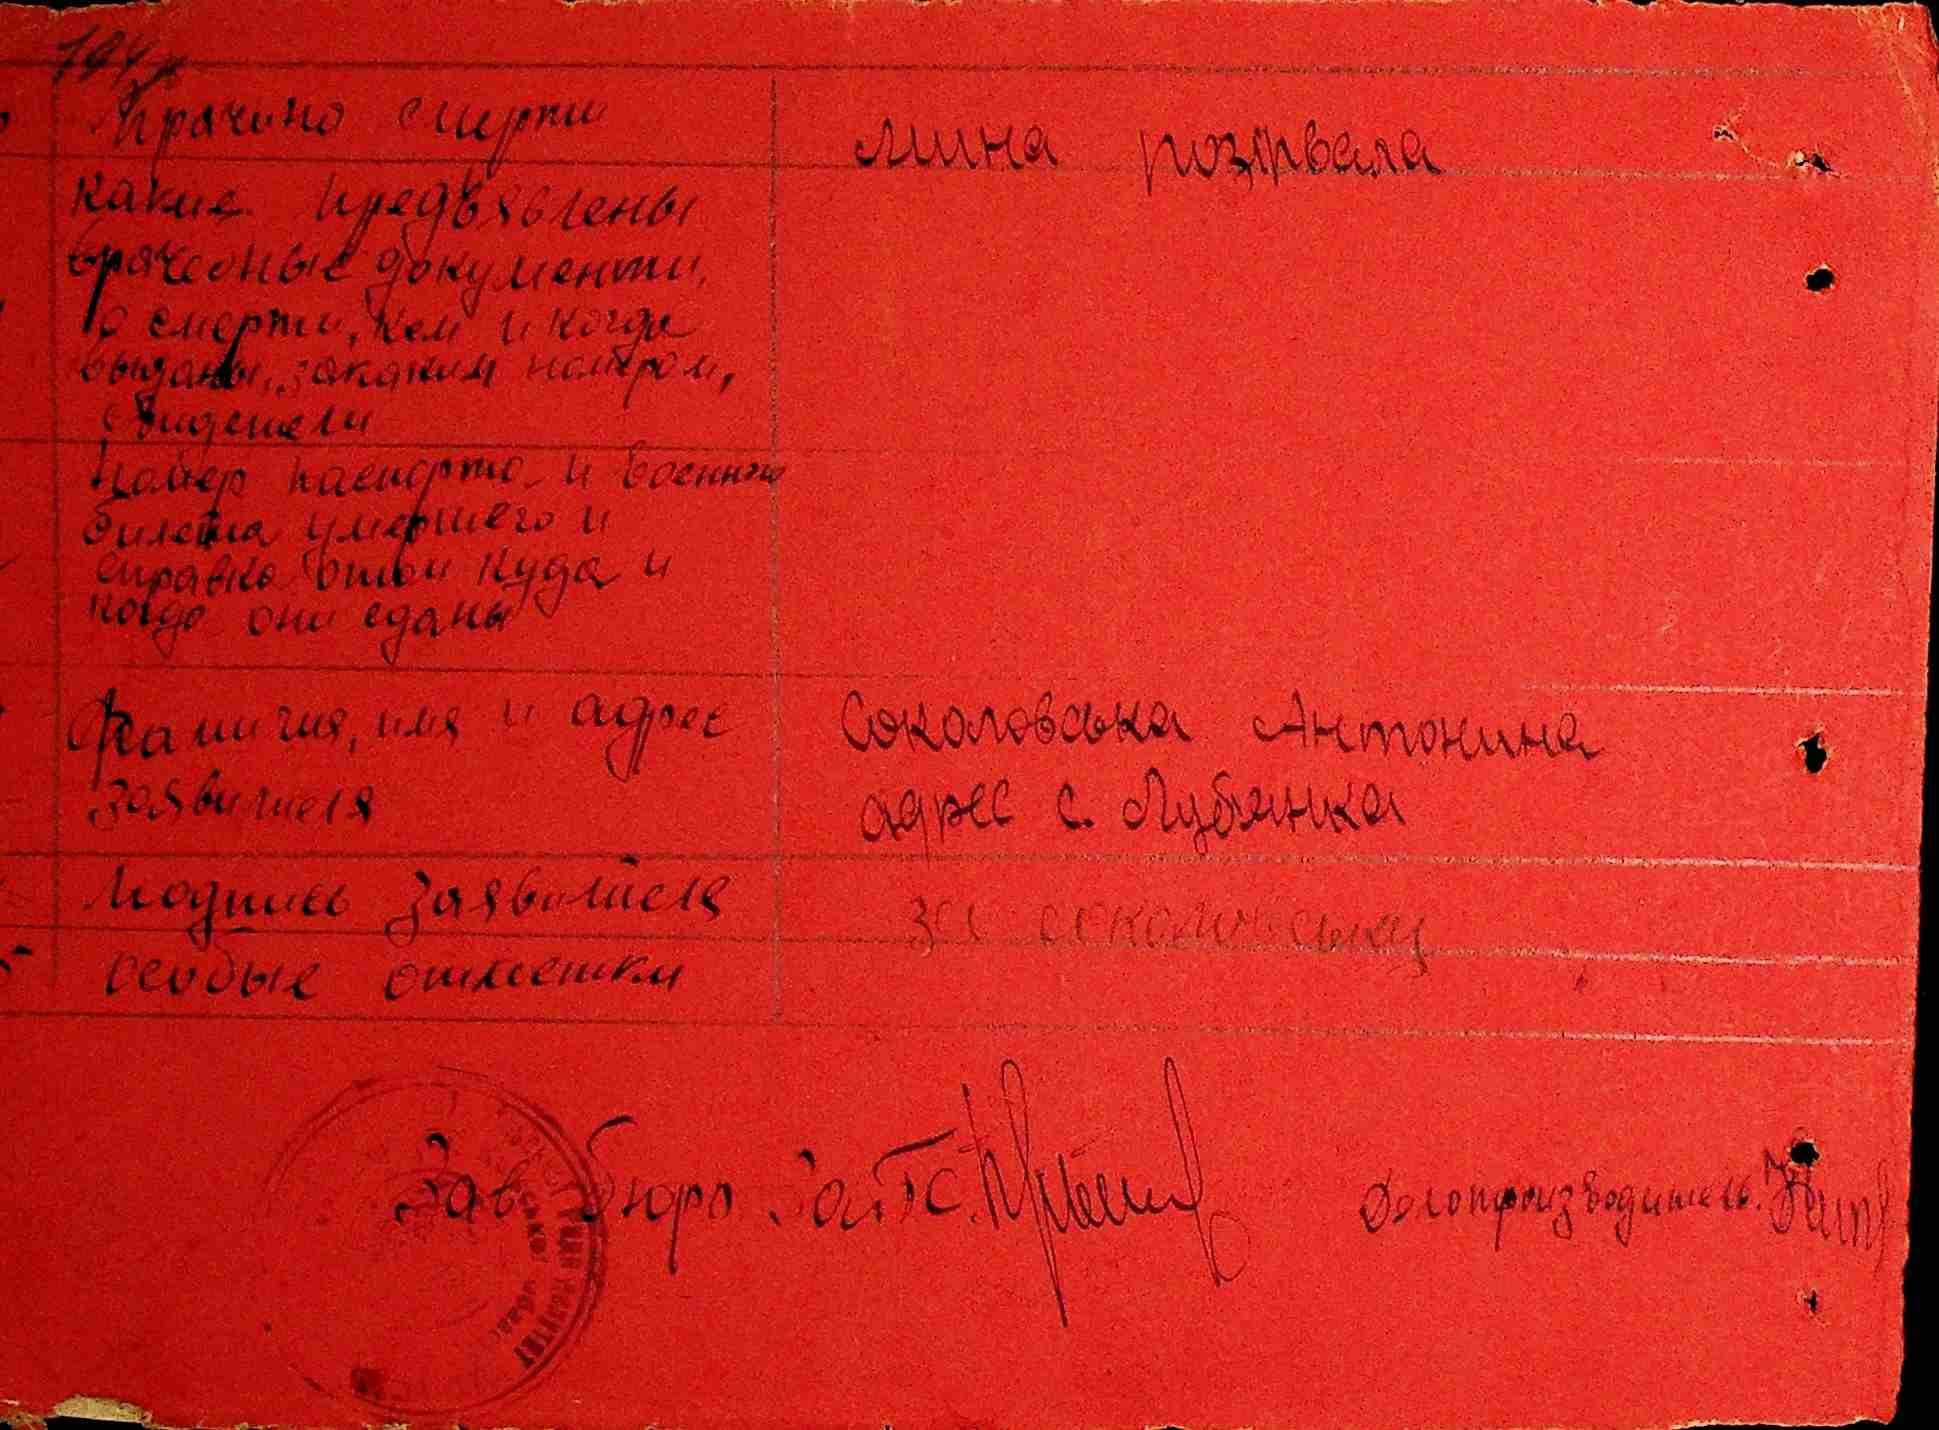 Причина смерти
мина розірвала
какие предъявлены
врачебные документи,
о смерти, кем и когда
выданы, закаким номером,
свидетели
Номер паспорта и военного
билета умершего и
справка отом куда и
когда они сданы
Фамилия, имя и адрес
заявителя
Соколовська Антонина
адрес с. Лубянка
Подпись заявителя
за соколовську
особые отметки
Зав. бюро ЗаГС.
Делопроизводитель.